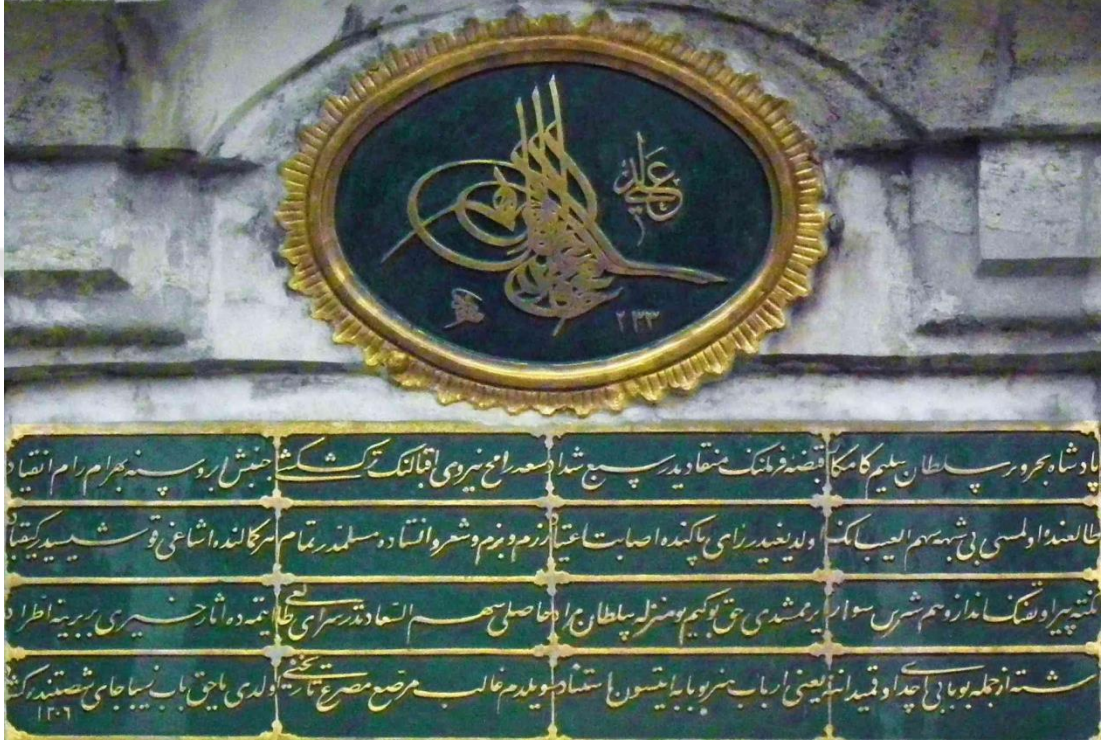 عدلی
٢٣٣
پادشاه بحر و بر سلطان سلیم کامکار قبضهٔ فرماننک منقادیدر سبع شداد سعد رامح نیروی اقبالنک ترکشکشی جنبش ابروسنه بهرام رام انقیاد
طالعنده اولمسی بی شبهه سهم الغیب انک اولدیغیدر رای پاکنده اصابت اعتیاد رزم و بزم و شعر و انشاده مسلمدر تمام هر کمالنده اشاغی کیقباد
نکته پیرا و تفنک انداز و هم سوار ایرممشدی حق بو کیم بو منزله سلطان مراد حاصلی سهم السعادتدر سرای طالعی ایتمده اثار خیری بربرینه اطراد
از جمله بو بابی یعنی ارباب هنر بو بابه ایتسون استناد سویلدم غالب مرصع مصرع تاریخنی اولدی یا حق باب زیبا جای
١٢٠٦